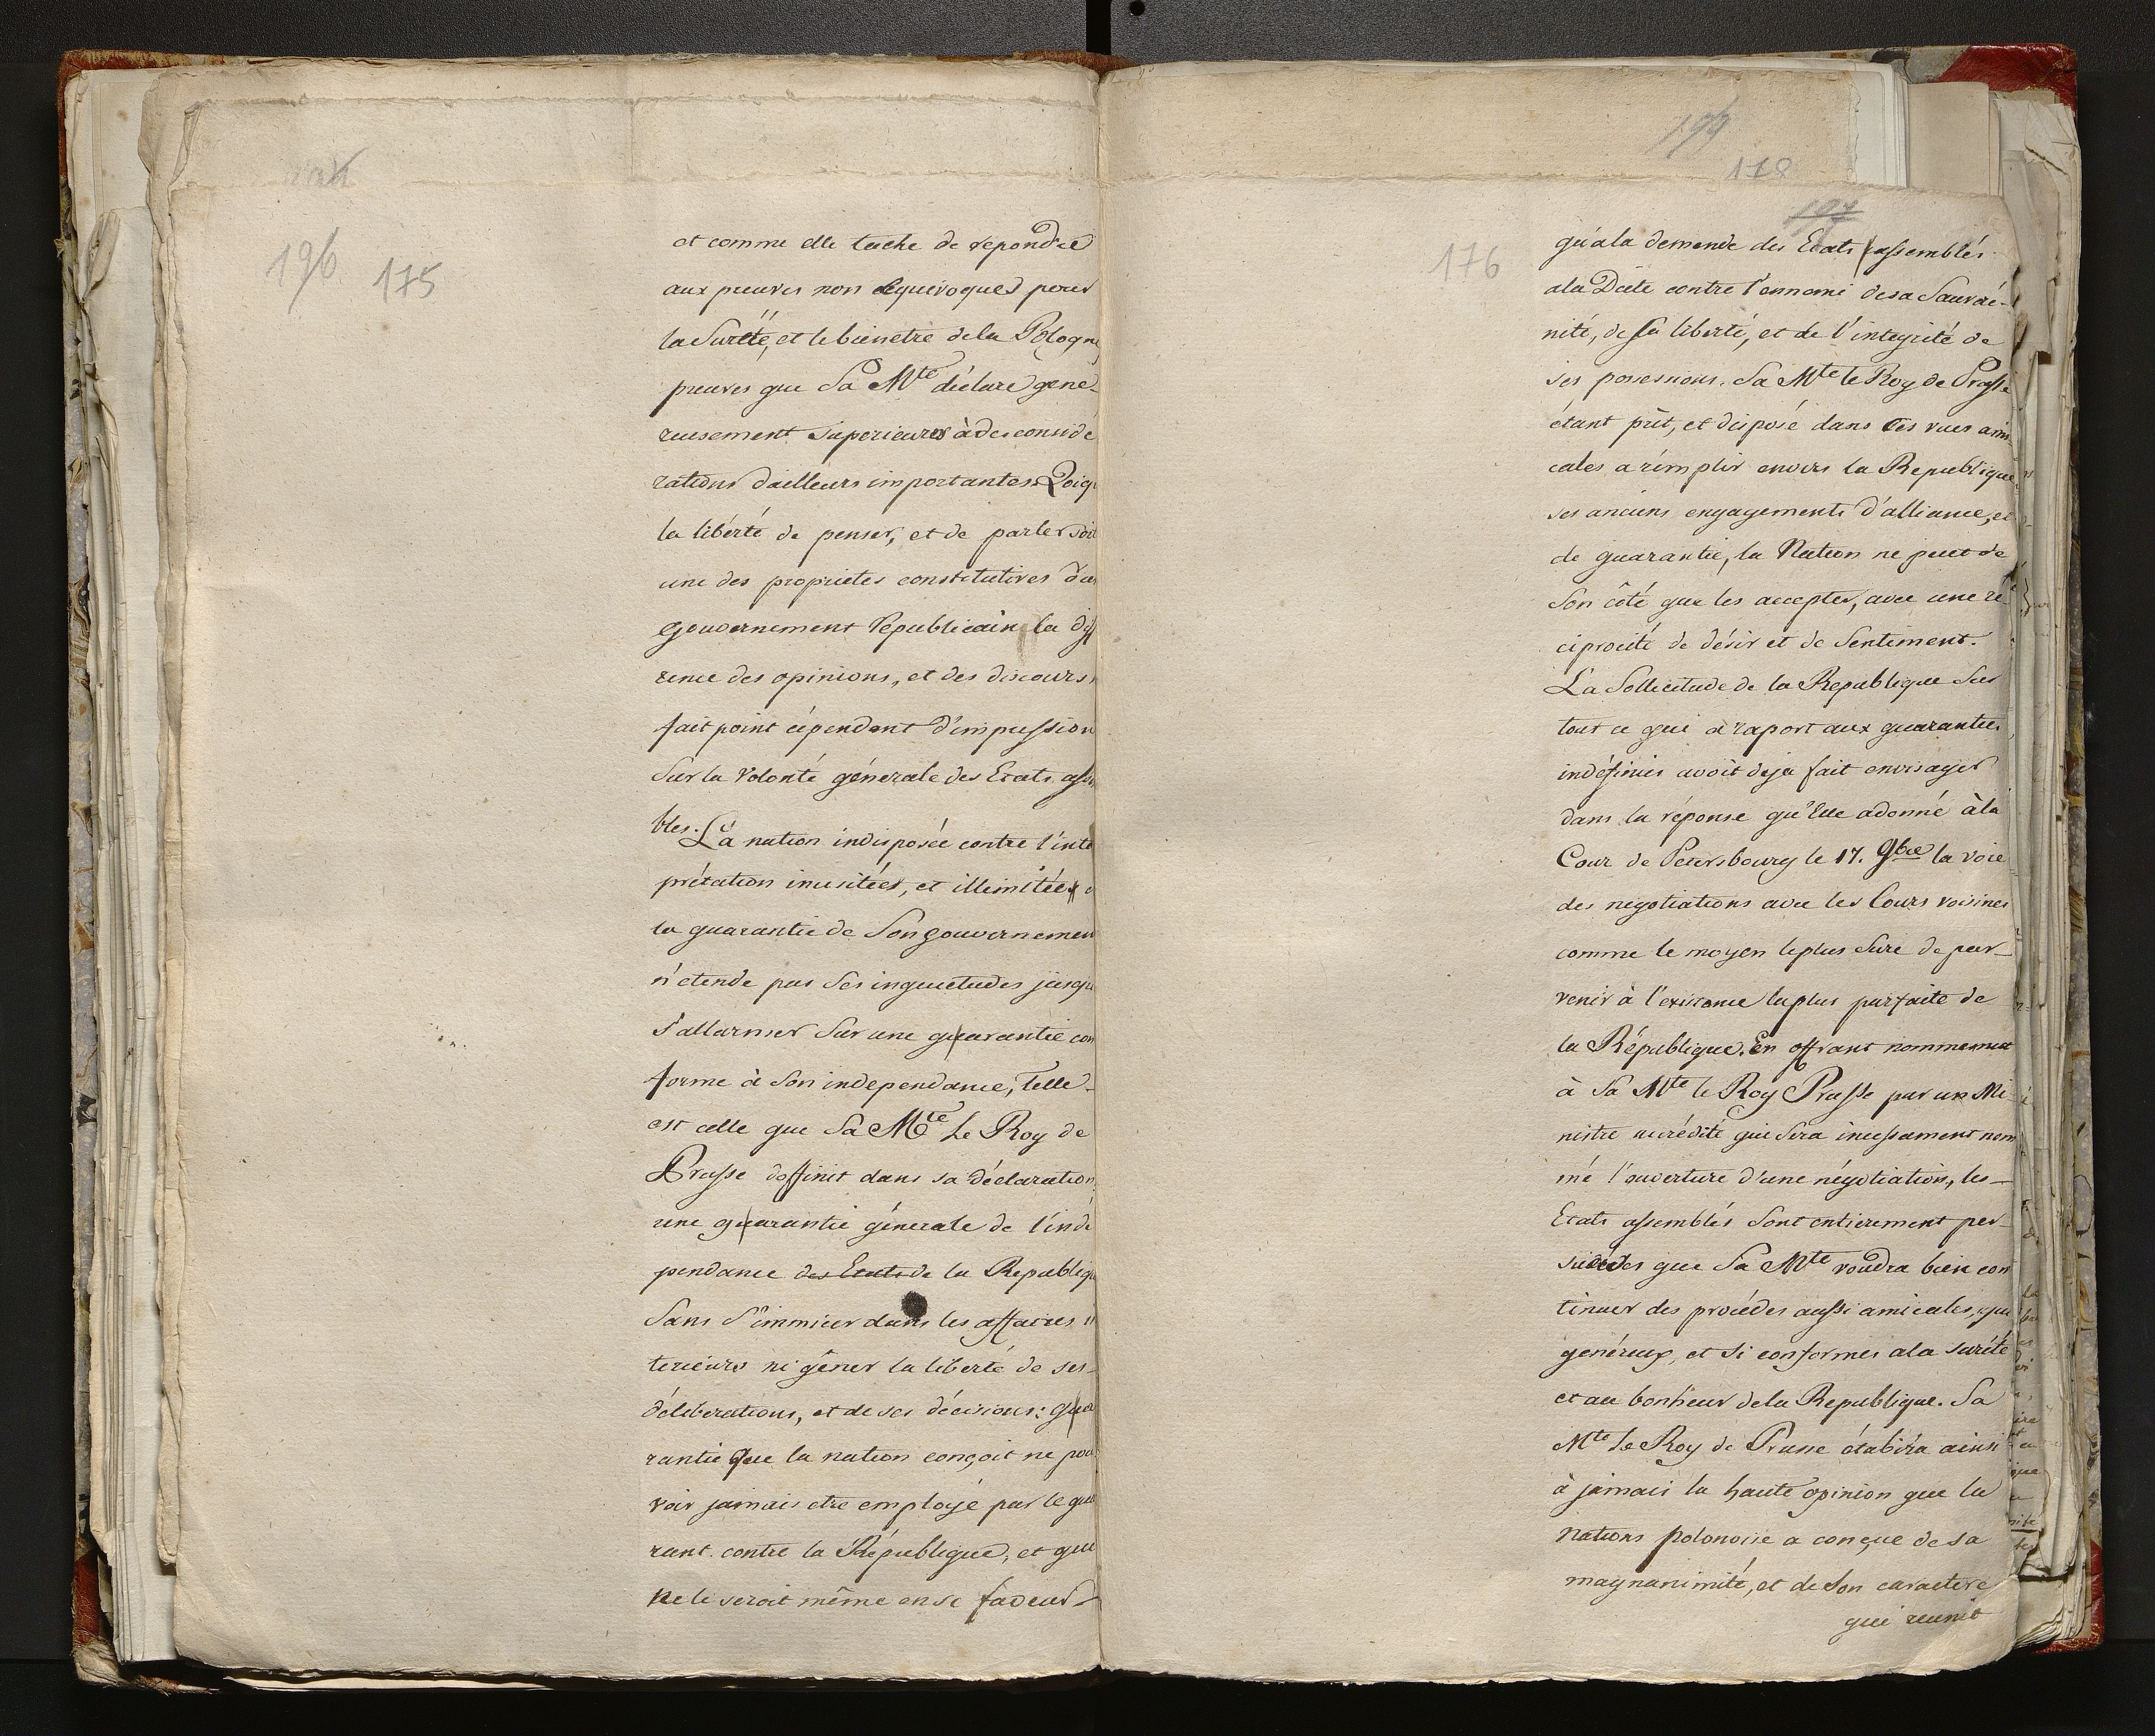 196. 175
et comme elle tache de repondre
aux preuves non equivoques pour
la Sureté, et le bienetre de la Pologne
preuves que Sa Mté déclare gene-
reusement Superieures à des conside
rations d'ailleurs importantes. Qoiq
la liberté de penser, et de parler soit
une des proprietes constitutives d'un
gouvernement Republicain la diff
rence des opinions, et des discours
fait point cépendant d'impression
Sur la Volonté génerale des Etats assem
bles. La nation indisposée contre l'inte
prétation inusitées, et illimitée
la guarantie de Son gouvernemen
n'etende pas Ses inquietudes jusqu
s'allarmer Sur une guarantie con
forme à Son independance, Telle-
est celle que Sa Mté Le Roy de
Prusse deffinit dans sa déclaration
une guarantie génerale de l'inde
pendance des Etats de la Republiqu
Sans S'immicer dans les affaires in
terieurs ni gêner la liberté de ses-
déliberations, et de ses décisions: gua
rantie que la nation conçoit ne pou
voir jamais etre employé par le gua
rant. contre la République, et que
ne le seroit même en se faveur
194
178
197
176
qu'a la demande des Etats assemblés
a la Diéte contre l'ennemi de sa Souvrai-
nité, de sa liberté, et de l'integrité de
ses possessions. Sa Mte le Roy de Prusse
étant prèt, et disposé dans ces vues ami-
cales a rémplir envers la Republique
ses anciens engagements d'alliance, et
de guarantie, la Nation ne peut de
Son côté que les accepter, avec une ré-
ciprocité de désir et de Sentiment.
La Sollicitude de la Republique Sur
tout ce qui a raport aux guaranties
indéfinies avoit deja fait envisager
dans la réponse qu'Elle a donné à la
Cour de Petersbourg le 17. 9bre la voie
des négotiations avec les Cours voisines
comme le moyen le plus Sure de par-
venir à l'existance la plus parfaite de
la République. En offrant nommement
à Sa Mte le Roy Prusse par un Mi-
nistre accrédité qui Sera incessament nom
mé l'ouverture d'une négotiation, les-
Etats assemblés Sont entierement per-
suadés que Sa Mte voudra bien con
tinuer des procédes aussi amicales, que
genéreux, et si conformes a la surété
et au bonheur de la Republique. Sa
Mte Le Roy de Prusse établira ainsi
à jamais la haute opinion que la
nations polonoise a conçue de sa
magnanimité, et de Son caractere
qui reunit